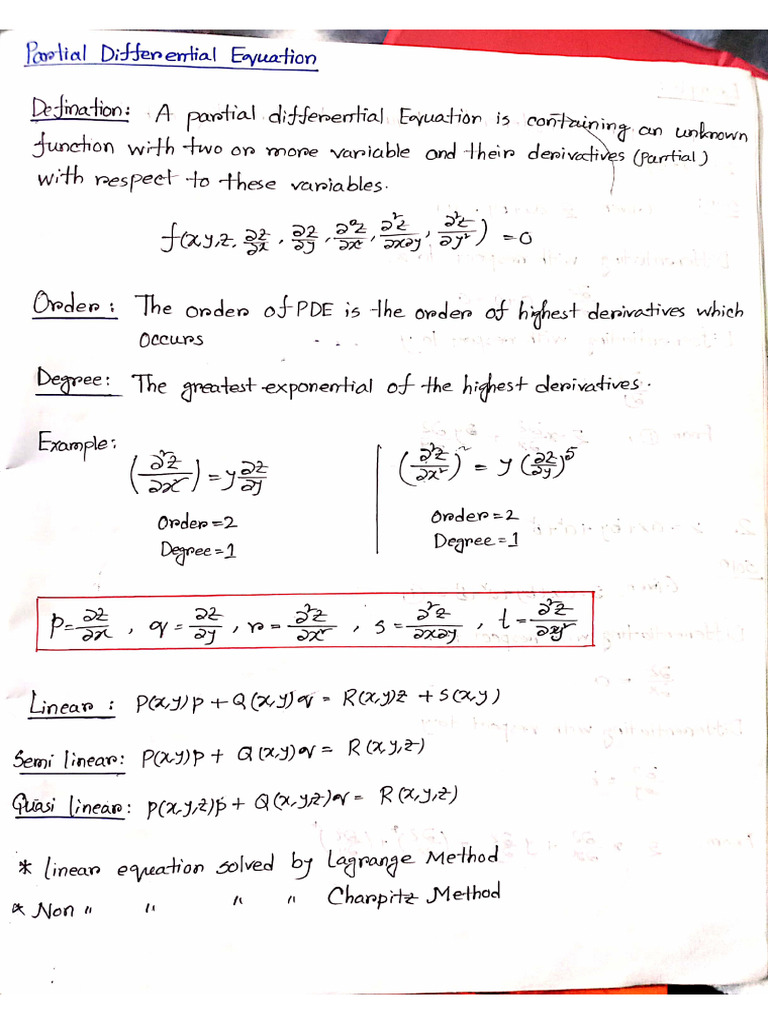 Partial Differential Equation
Defination: A partial differential Equation is containing an unknown
function with two or more variable and their derivatives (Partial)
with respect to these variables.
f(x y, z, ∂z/∂x, ∂z/∂y, ∂²z/∂x², ∂²z/∂x∂y, ∂²z/∂y²) = 0
Order: The order of PDE is the order of highest derivatives which
occurs
Degree: The greatest exponential of the highest derivatives.
Example:
(∂²z/∂x²) = y ∂z/∂y
Order = 2
Degree = 1
(∂²z/∂x²)² = y (∂z/∂y)⁵
Order = 2
Degree = 1
P = ∂z/∂x, q = ∂z/∂y, r = ∂²z/∂x², s = ∂²z/∂x∂y, t = ∂²z/∂y²
Linear: P(x,y)p + Q(x,y)q = R(x,y)z + S(x,y)
Semi linear: P(x,y)p + Q(x,y)q = R(x,y,z)
Quasi linear: P(x,y,z)p + Q(x,y,z)q = R(x,y,z)
* Linear equation solved by Lagrange Method
* Non " " " " Charpitz Method